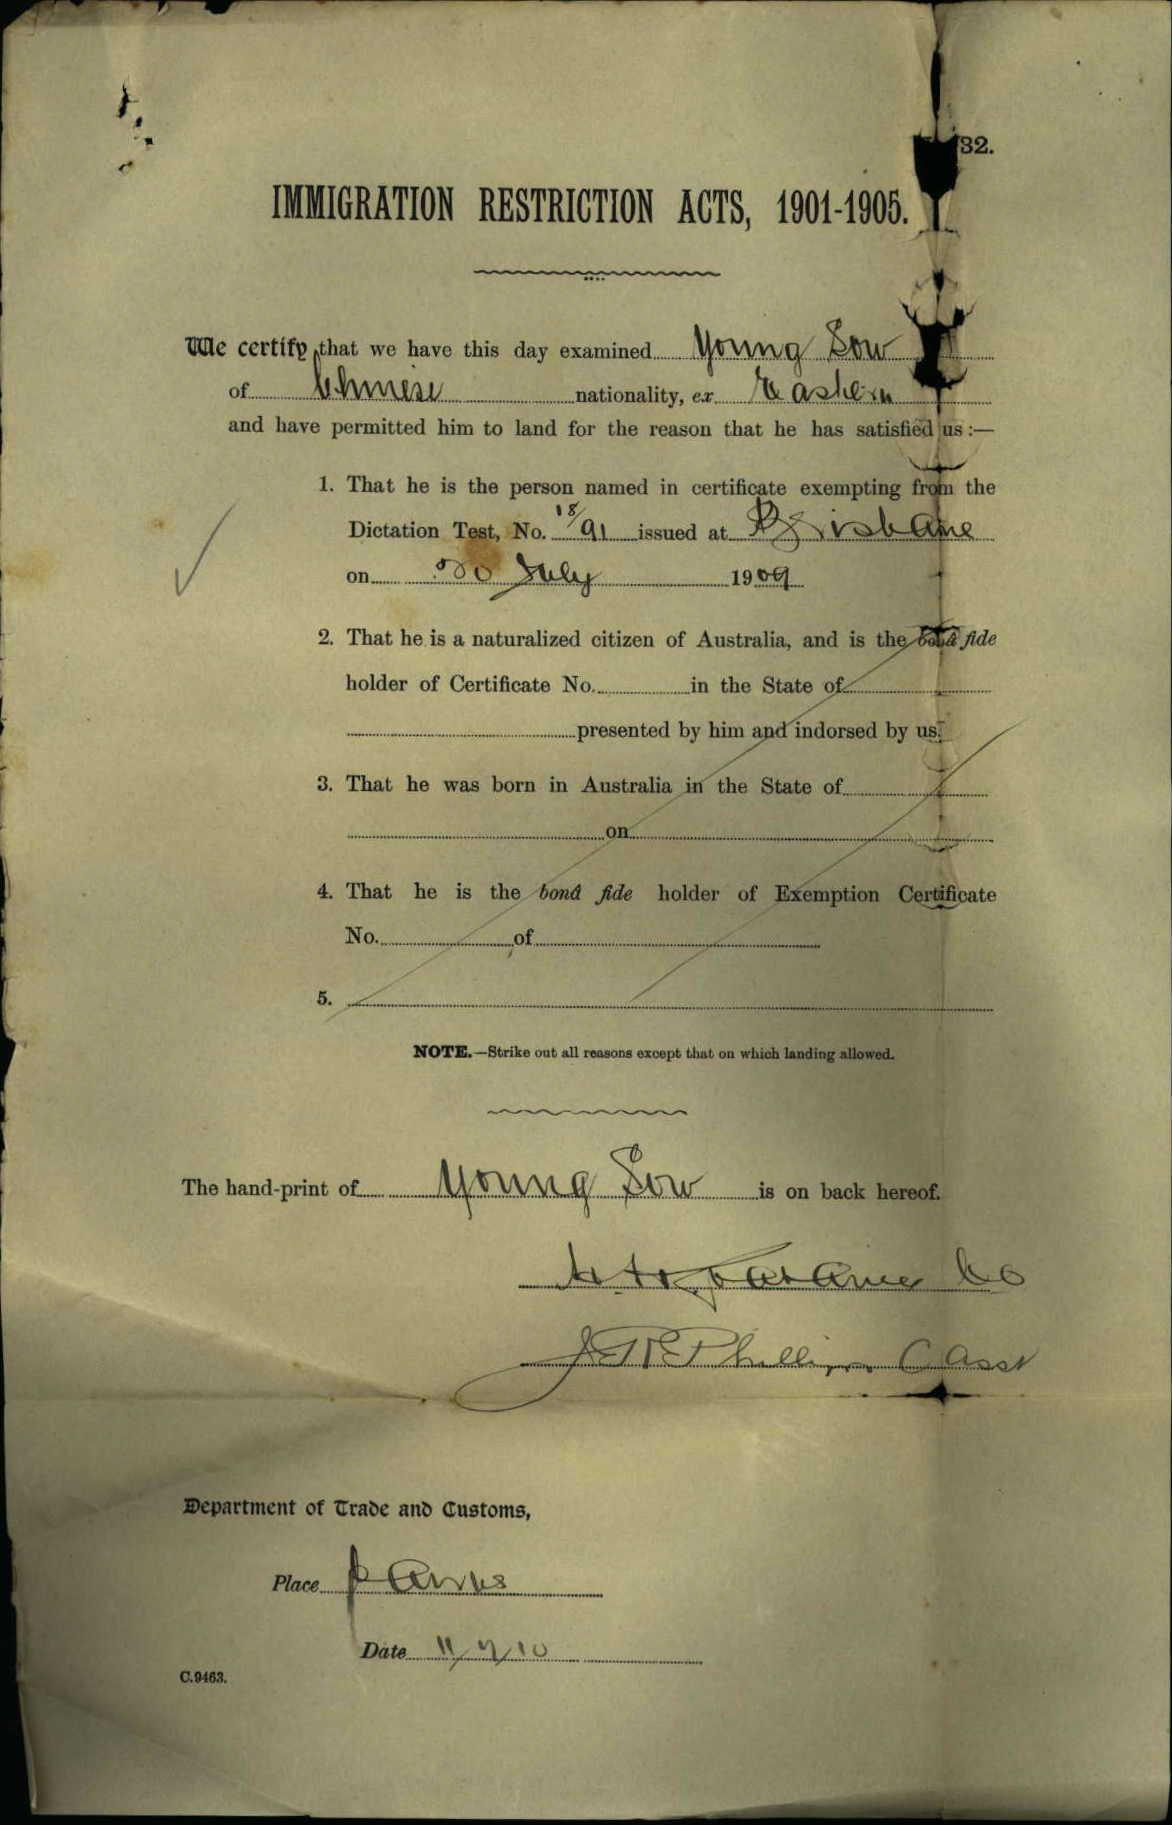 32.
IMMIGRATION RESTRICTION ACTS, 1901-1905.
We certify that we have this day examined Young Sow
of Chinese nationality, ex Eastern
and have permitted him to land for the reason that he has satisfied us :—
1. That he is the person named in certificate exempting from the
Dictation Test, No. 18/91 issued at Brisbane
on 20 July 1909
2. That he is a naturalized citizen of Australia, and is the bonâ fide
holder of Certificate No. in the State of
presented by him and indorsed by us.
3. That he was born in Australia in the State of
on
4. That he is the bonâ fide holder of Exemption Certificate
No. of
5.
NOTE.—Strike out all reasons except that on which landing allowed.
The hand-print of Young Sow is on back hereof.
Phillips C Asst
Department of Trade and Customs,
Place
Date 11/7/10
C.9463.